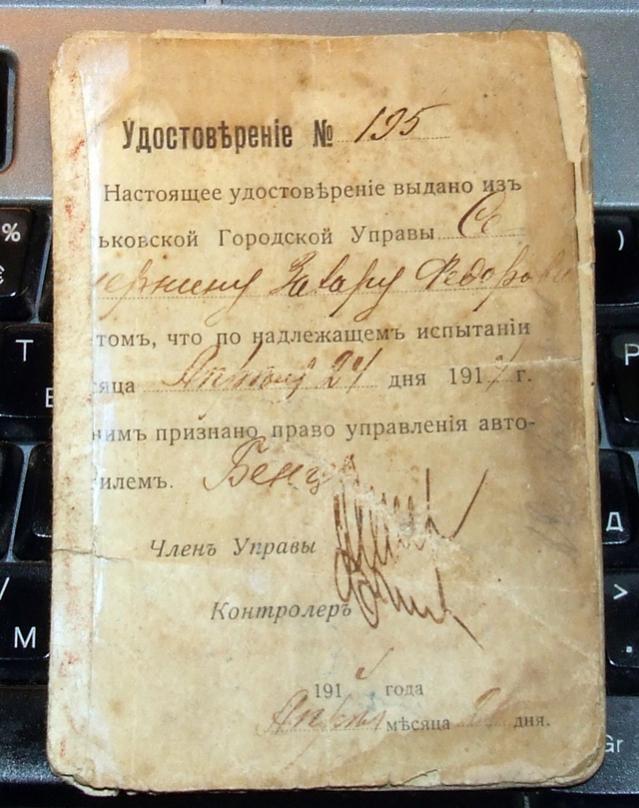 Удостовѣреніе № 195
Настоящее удостовѣреніе выдано изъ
ьковской Городской Управы Се
Захару Федоров
томъ, что по надлежащемъ испытаніи
яца Апрѣля 24 дня 191 г.
нимъ признано право управленія авто-
илемъ. Бенцъ
Членъ Управы
Контролеръ
191 года
Апрѣля мѣсяца дня.